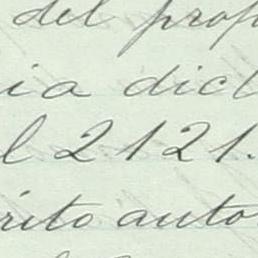 del prop
ia dict
l 2121.
rito auto